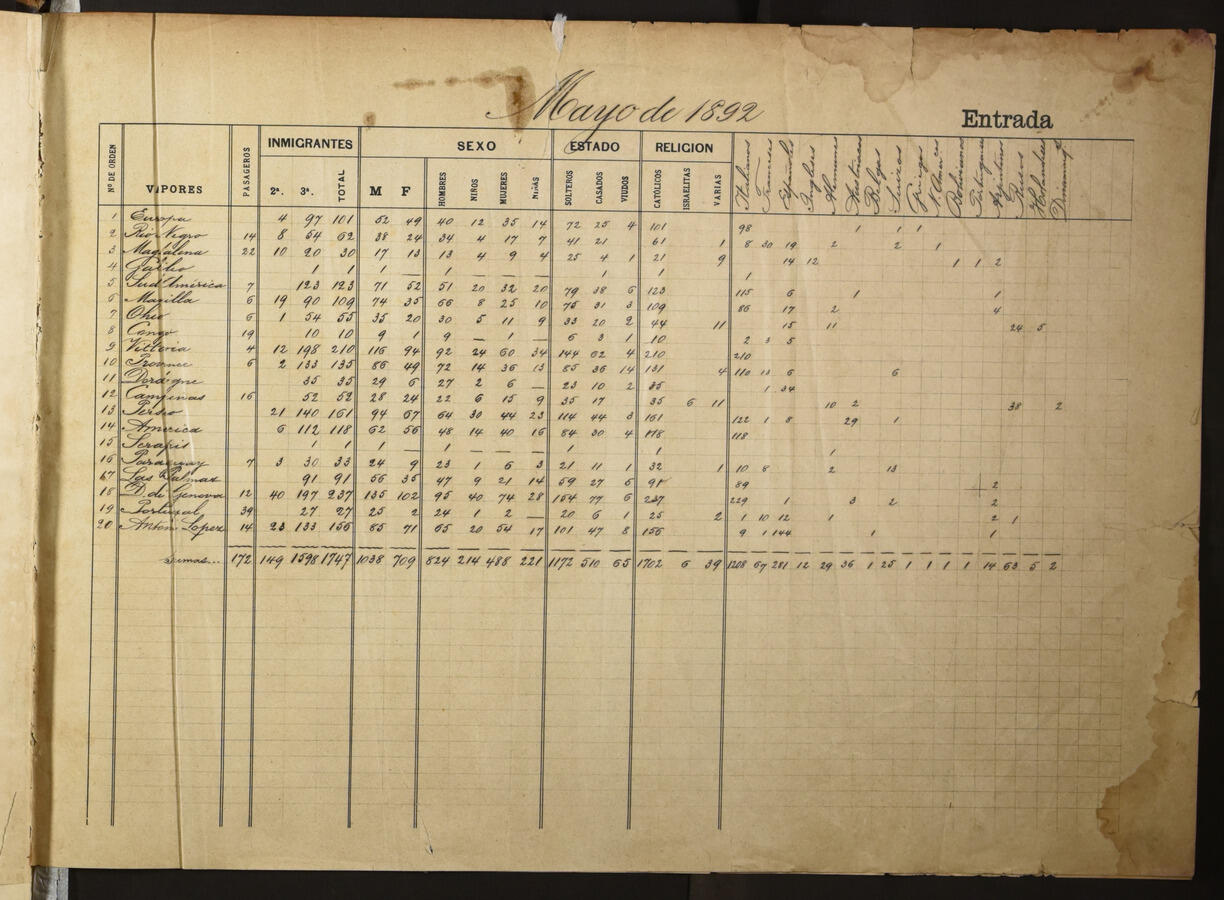 Mayo de 1892
Entrada
Nº DE ORDEN VAPORES PASAGEROS INMIGRANTES SEXO ESTADO RELIGION
2ª. 3ª. TOTAL M F HOMBRES NIÑOS MUJERES NIÑAS SOLTEROS CASADOS VIUDOS CATÓLICOS ISRAELITAS VARIAS Italianos Franceses Españoles Ingleses Alemanes Austriacos Belgas Suizos Griegos Bolivianos Portugueses Argentinos Rusos Holandeses
1 Europa 4 97 101 52 49 40 12 35 14 72 25 4 101 98 1 1 1
2 Rio Negro 14 8 54 62 38 24 34 4 17 7 41 21 61 1 8 30 19 2 2 1
3 Magdalena 22 10 20 30 17 13 13 4 9 4 25 4 1 21 9 14 12 1 1 2
4 1 1 1 — 1 — — — 1 1 1
5 Sud América 7 123 123 71 52 51 20 32 20 79 38 6 123 115 6 1 1
6 Matilla 6 19 90 109 74 35 66 8 25 10 75 31 3 109 86 17 2 4
7 Ohio 6 1 54 55 35 20 30 5 11 9 33 20 2 44 11 15 11 24 5
8 Congo 19 10 10 9 1 9 — 1 — 6 3 1 10 2 3 5
9 Vittoria 4 12 198 210 116 94 92 24 60 34 144 62 4 210 210
10 Provence 6 2 133 135 86 49 72 14 36 13 85 36 14 131 4 110 13 6 6
11 Dordogne 35 35 29 6 27 2 6 — 23 10 2 35 1 34
12 Campinas 16 52 52 28 24 22 6 15 9 35 17 35 6 11 10 2 38 2
13 Perseo 21 140 161 94 67 64 30 44 23 114 44 3 161 122 1 8 29 1
14 America 6 112 118 62 56 48 14 40 16 84 30 4 118 118
15 Serapis 1 1 1 — 1 — — — 1 1 1
16 Paraguay 7 3 30 33 24 9 23 1 6 3 21 11 1 32 1 10 8 2 13
17 Las Palmas 91 91 56 35 47 9 21 14 59 27 5 91 89 2
18 D. di Genova 12 40 197 237 135 102 95 40 74 28 154 77 6 237 229 1 3 2 2
19 Portugal 39 27 27 25 2 24 1 2 — 20 6 1 25 2 1 10 12 1 2 1
20 Antoni Lopez 14 23 133 156 85 71 65 20 54 17 101 47 8 156 9 1 144 1 1
Sumas... 172 149 1598 1747 1038 709 824 214 488 221 1172 510 65 1702 6 39 1208 67 281 12 29 36 1 25 1 1 1 1 14 63 5 2